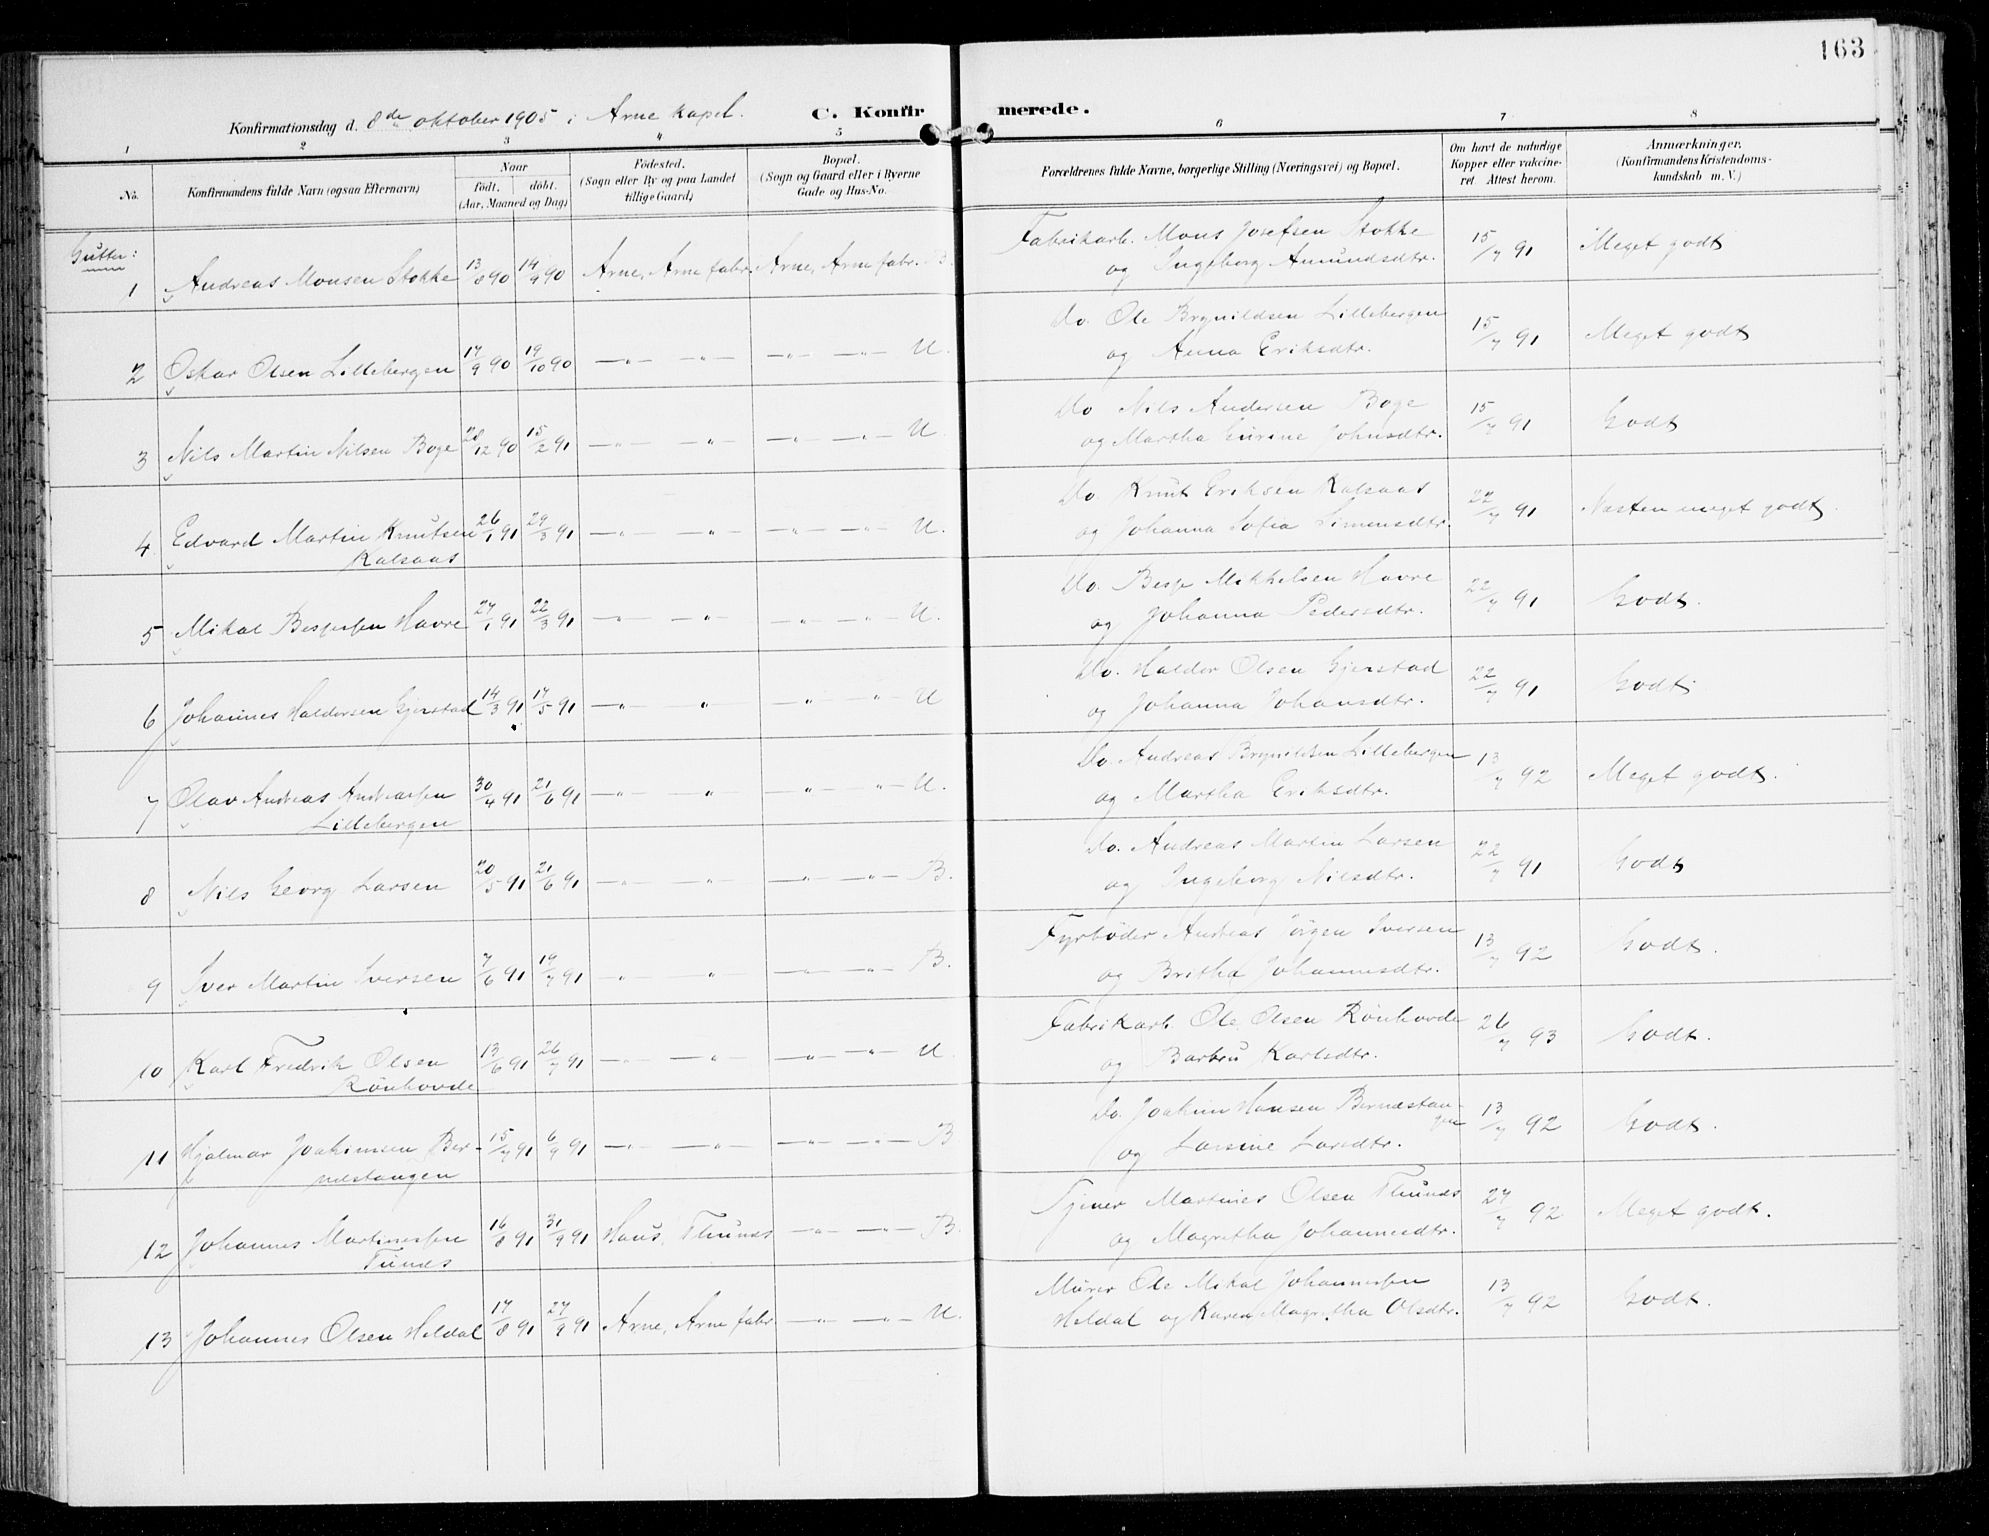 163
Konfirmationsdag d. 8de oktober 1905 i Arne kapel.
C. Konfirmerede.
1 2 3 4 5 6 7 8
No. Konfirmandens fulde Navn (ogsaa Efternavn) Naar födt. döbt. (Aar, Maaned og Dag) Födested. (Sogn eller By og paa Landet tillige Gaard) Bopæl. (Sogn og Gaard eller i Byerne Gade og Hus-No. Forældrenes fulde Navne, borgerlige Stilling (Næringsvei) og Bopæl. Om havt de naturlige Kopper eller vakcineret. Attest herom. Anmærkninger. (Konfirmandens Kristendomskundskab m. V.)
Gutter:
1 Andreas Monsen Stokke 13/8 90 14/9 90 Arne, Arne fabr. Arne, Arne fabr. B. Fabrikarb. Mons Josefsen Stokke og Ingeborg Amundsdtr. 15/7 91 Meget godt
2 Oskar Olsen Lillebergen 17/9 90 19/10 90 —"— —"— —"— —"— U. Do. Ole Brynildsen Lillebergen og Anna Eriksdtr. 15/7 91 Meget godt
3 Nils Martin Nilsen Boge 28/12 90 15/2 91 —"— " —"— —"— U. Do Nils Andersen Boge og Martha Gurine Johnsdtr. 15/7 91 Godt
4 Edvard Martin Knutsen Kalsaas 26/1 91 29/3 91 —"— " —"— —"— U. Do. Knut Eriksen Kalsaas og Johanna Sofia Simonsdtr. 22/7 91 Næsten meget godt.
5 Mikal Bespersen Havre 27/1 91 22/3 91 —"— —"— —"— —"— U. Do. Besp Mikkelsen Havre og Johanna Pedersdtr. 22/7 91 Godt.
6 Johannes Haldorsen Gjerstad 14/3 91 17/5 91 —"— " " —"— U Do. Haldor Olsen Gjerstad og Johanna Johansdtr. 22/7 91 Godt
7 Olav Andreas Andreassen Lillebergen 30/4 91 21/6 91 —"— " " —"— U. Do. Andreas Brynildsen Lillebergen og Martha Eriksdtr. 13/7 92 Meget godt.
8 Nils Georg Larsen 20/5 91 21/6 91 —"— " —"— —"— B. Do. Andreas Martin Larsen og Ingeborg Nilsdtr. 22/7 91 Godt
9 Iver Martin Iversen 7/6 91 19/7 91 " " —"— —"— B. Fyrböder Andreas Jörgen Iversen og Britha Johannesdtr. 13/7 92 Godt.
10 Karl Fredrik Olsen Rönhovde 13/6 91 26/7 91 —"— —"— —"— —"— U. Fabrikarb. Ole Olsen Rönhovde og Barbru Karlsdtr. 26/7 93 Godt.
11 Hjalmar Joakimsen Berndstangen 15/7 91 6/9 91 —"— —"— —"— —"— B. Do. Joakim Hansen Berndstangen og Larsine Larsdtr. 13/7 92 Godt.
12 Johannes Martinessen Tunds 16/8 91 31/9 91 Haus, Thunds —"— —"— B. Tjener Martines Olsen Thunds og Magretha Johannesdtr. 27/7 92 Meget godt.
13 Johannes Olsen Heldal 17/8 91 27/9 91 Arne, Arne fabr. —"— —"— U. Murer Ole Mikal Johannessen Heldal og Karen Magretha Olsdtr. 13/7 92 Godt.